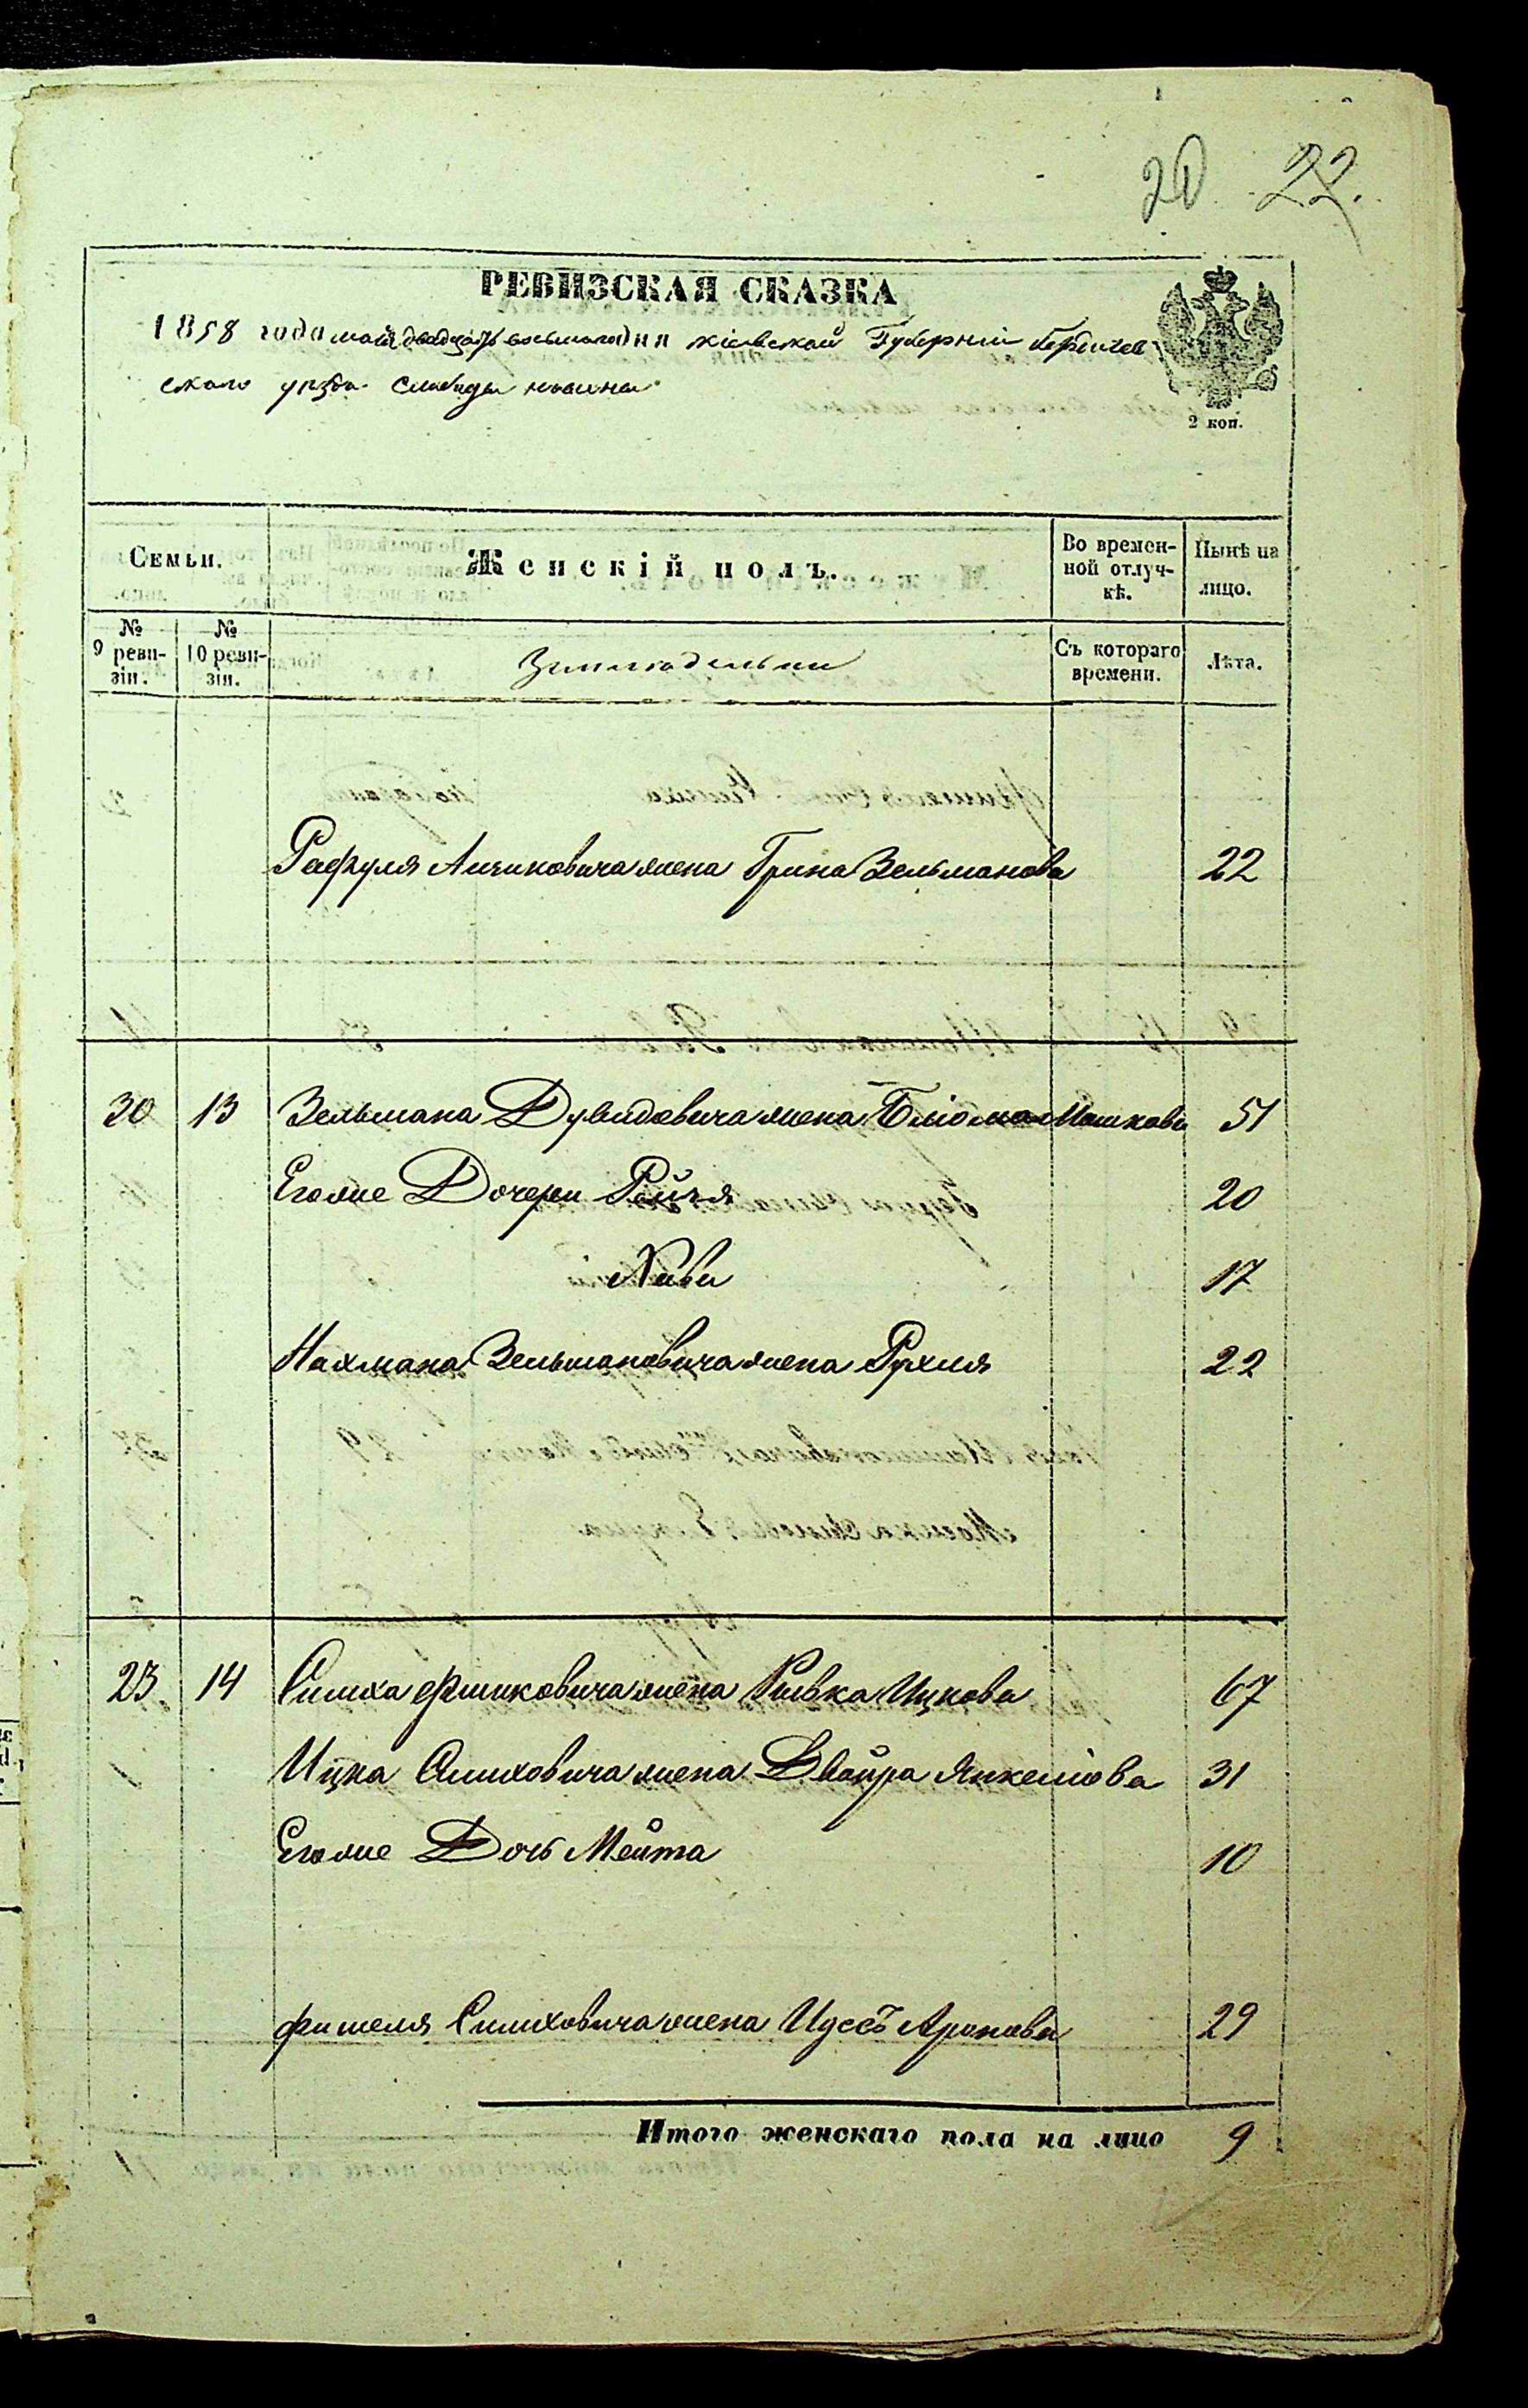 20 22.
РЕВИЗСКАЯ СКАЗКА
1858 года мая двадцать восьмого дня Кіевской Губерніи Бердичев
ского уезда Слободы новины
2 коп.
Семьи. Женскій полъ. Во времен-ной отлуч-кѣ. Нынѣ на лицо.
№ 9 реви-зіи. № 10 реви-зіи. Земледельцы Съ котораго времени. Лѣта.
Рафуля Лизиковича жена Грина Зельманова 22
30 13 Зельмана Дувидовича жена Блюма Мошкова 51
Егоже Дочери Рейзя 20
Хива 17
Нахмана Зельмановича жена Рухля 22
23 14 Симха Фишковича жена Ривка Ицкова 67
Ицка Симховича жена Двойра Янкелiова 31
Егоже Дочь Мейта 10
Фишеля Симховича жена Идесъ Аронова 29
Итого женскаго пола на лицо 9